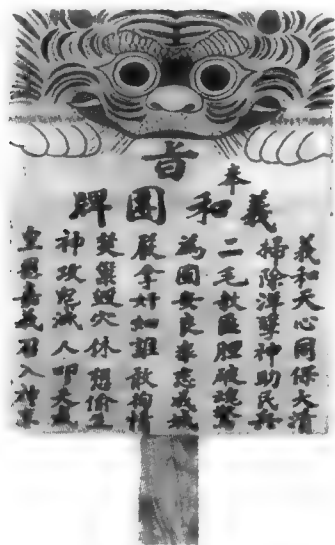 奉旨
義和團牌
義和天心同保大清
掃除洋孽神助民興
二毛教匪膽破魂驚
為國安良秉忠為城
嚴拿奸細誰敢拘情
焚巢毀穴休想偷生
神攻剋滅人叩太
皇恩嘉義召入神京